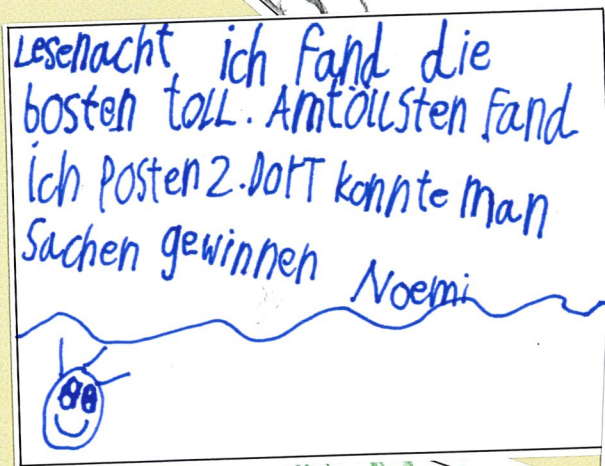 Lesenacht ich fand die
bosten toll. Amtöllsten fand
ich Posten 2. Dort konnte man
Sachen gewinnen Noemi